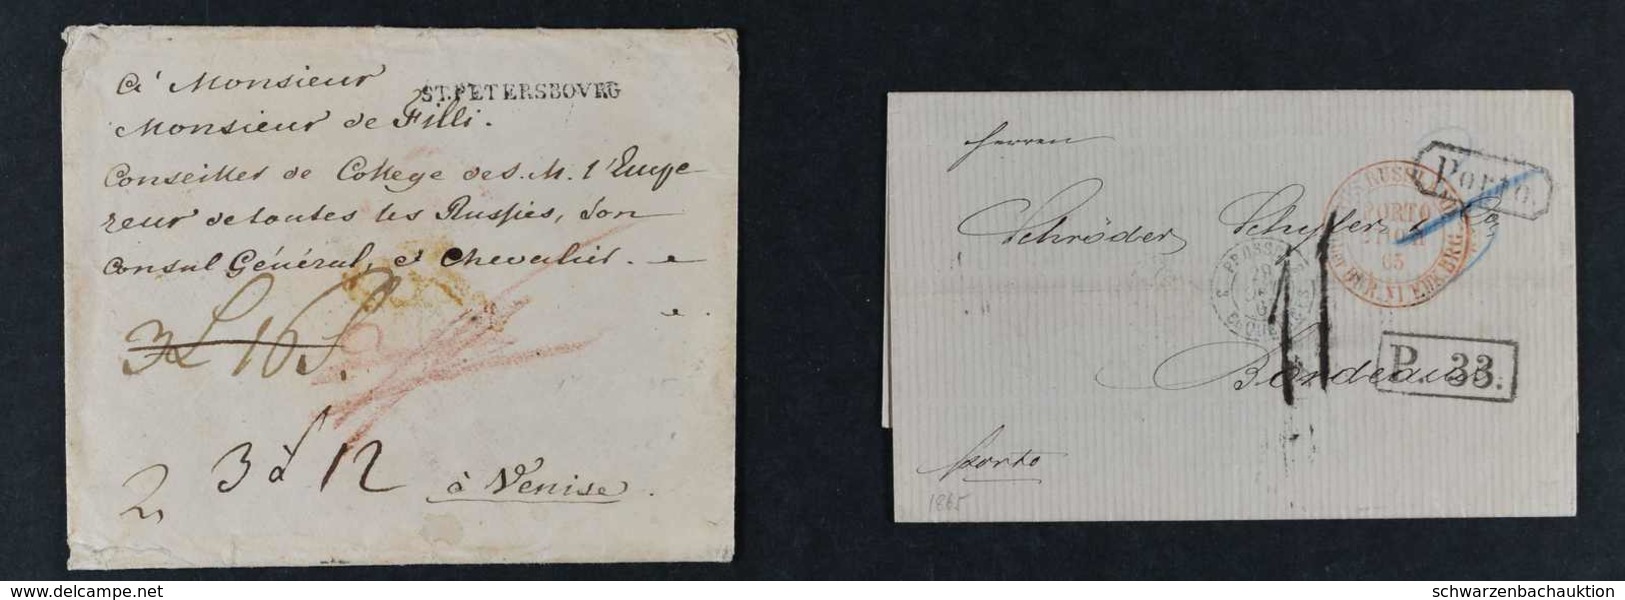 à Monsieur
ST.PETERSBOVRG
Monsieur de Filli.
Conseiller de College de S. M. l'Empe
reur de toutes les Russies, Son
Consul Général, et Chevalier.
3 16
3 12
2
à Venise.
Herren
Porto.
AUS RUSSLAND
PORTO
65
Schröder Schÿler & Co.
PRUSSE
20
3
3
11
Bordeaux
P. 33.
porto
1865
delcampe.net
schwarzenbachauktion